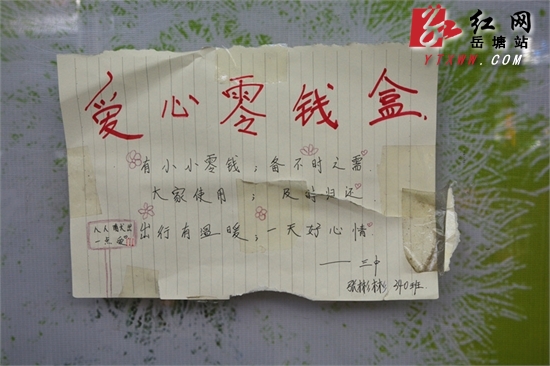 红网
岳塘站
YTXWW.COM
爱心零钱盒.
有小小零钱；备不时之需
大家使用；及时归还
出行有温暖；一天好心情
人人献出
一片爱
——三中
张彬彬 340班